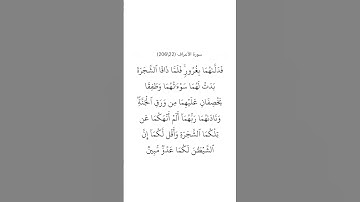 سورة الأعراف (22\206)
فَدَلَّىٰهُمَا بِغُرُورٍ ۚ فَلَمَّا ذَاقَا ٱلشَّجَرَةَ
بَدَتْ لَهُمَا سَوْءَٰتُهُمَا وَطَفِقَا
يَخْصِفَانِ عَلَيْهِمَا مِن وَرَقِ ٱلْجَنَّةِ ۖ
وَنَادَىٰهُمَا رَبُّهُمَآ أَلَمْ أَنْهَكُمَا عَن
تِلْكُمَا ٱلشَّجَرَةِ وَأَقُل لَّكُمَآ إِنَّ
ٱلشَّيْطَٰنَ لَكُمَا عَدُوٌّ مُّبِينٌ